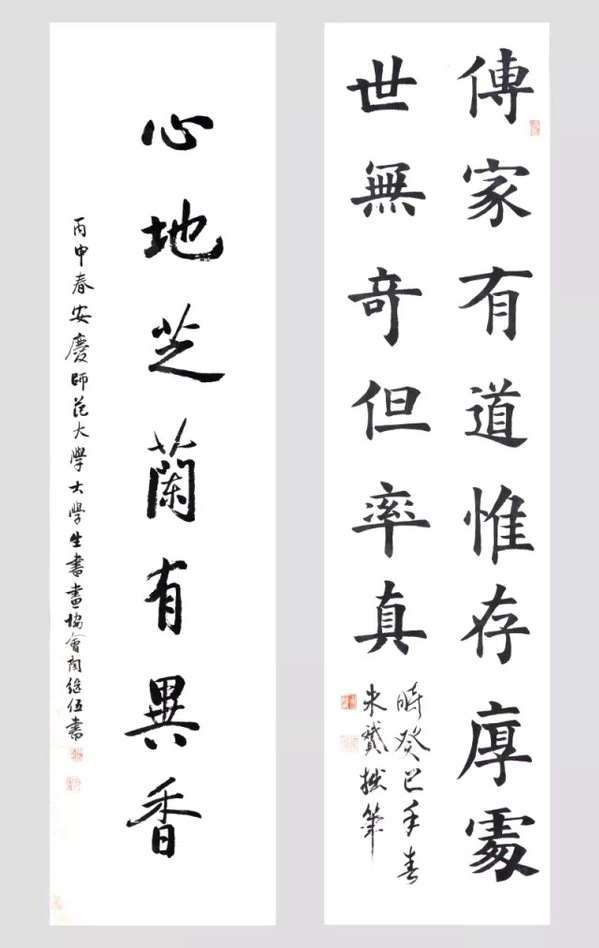 傳家有道惟存厚處
世無奇但率真
時癸巳年春
朱贇拙筆
心地芝蘭有異香
丙申春安慶師范大學大學生書畫協會繼伍書